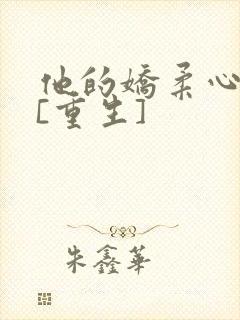 他的嬌柔心
[重生]
朱鑫華